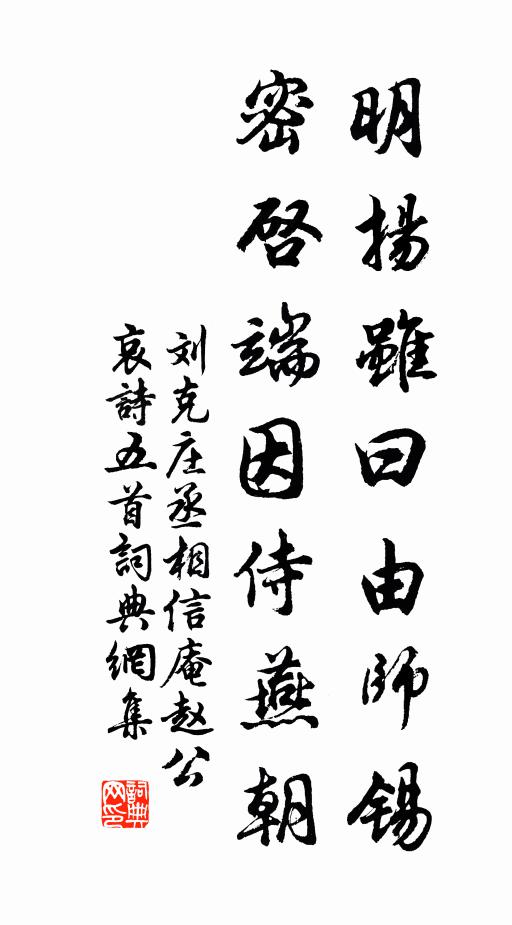 明揚雖曰由師錫
密啓端因侍燕朝
刘克庄丞相信庵赵公
哀詩五首詞典網集
詞典
网印